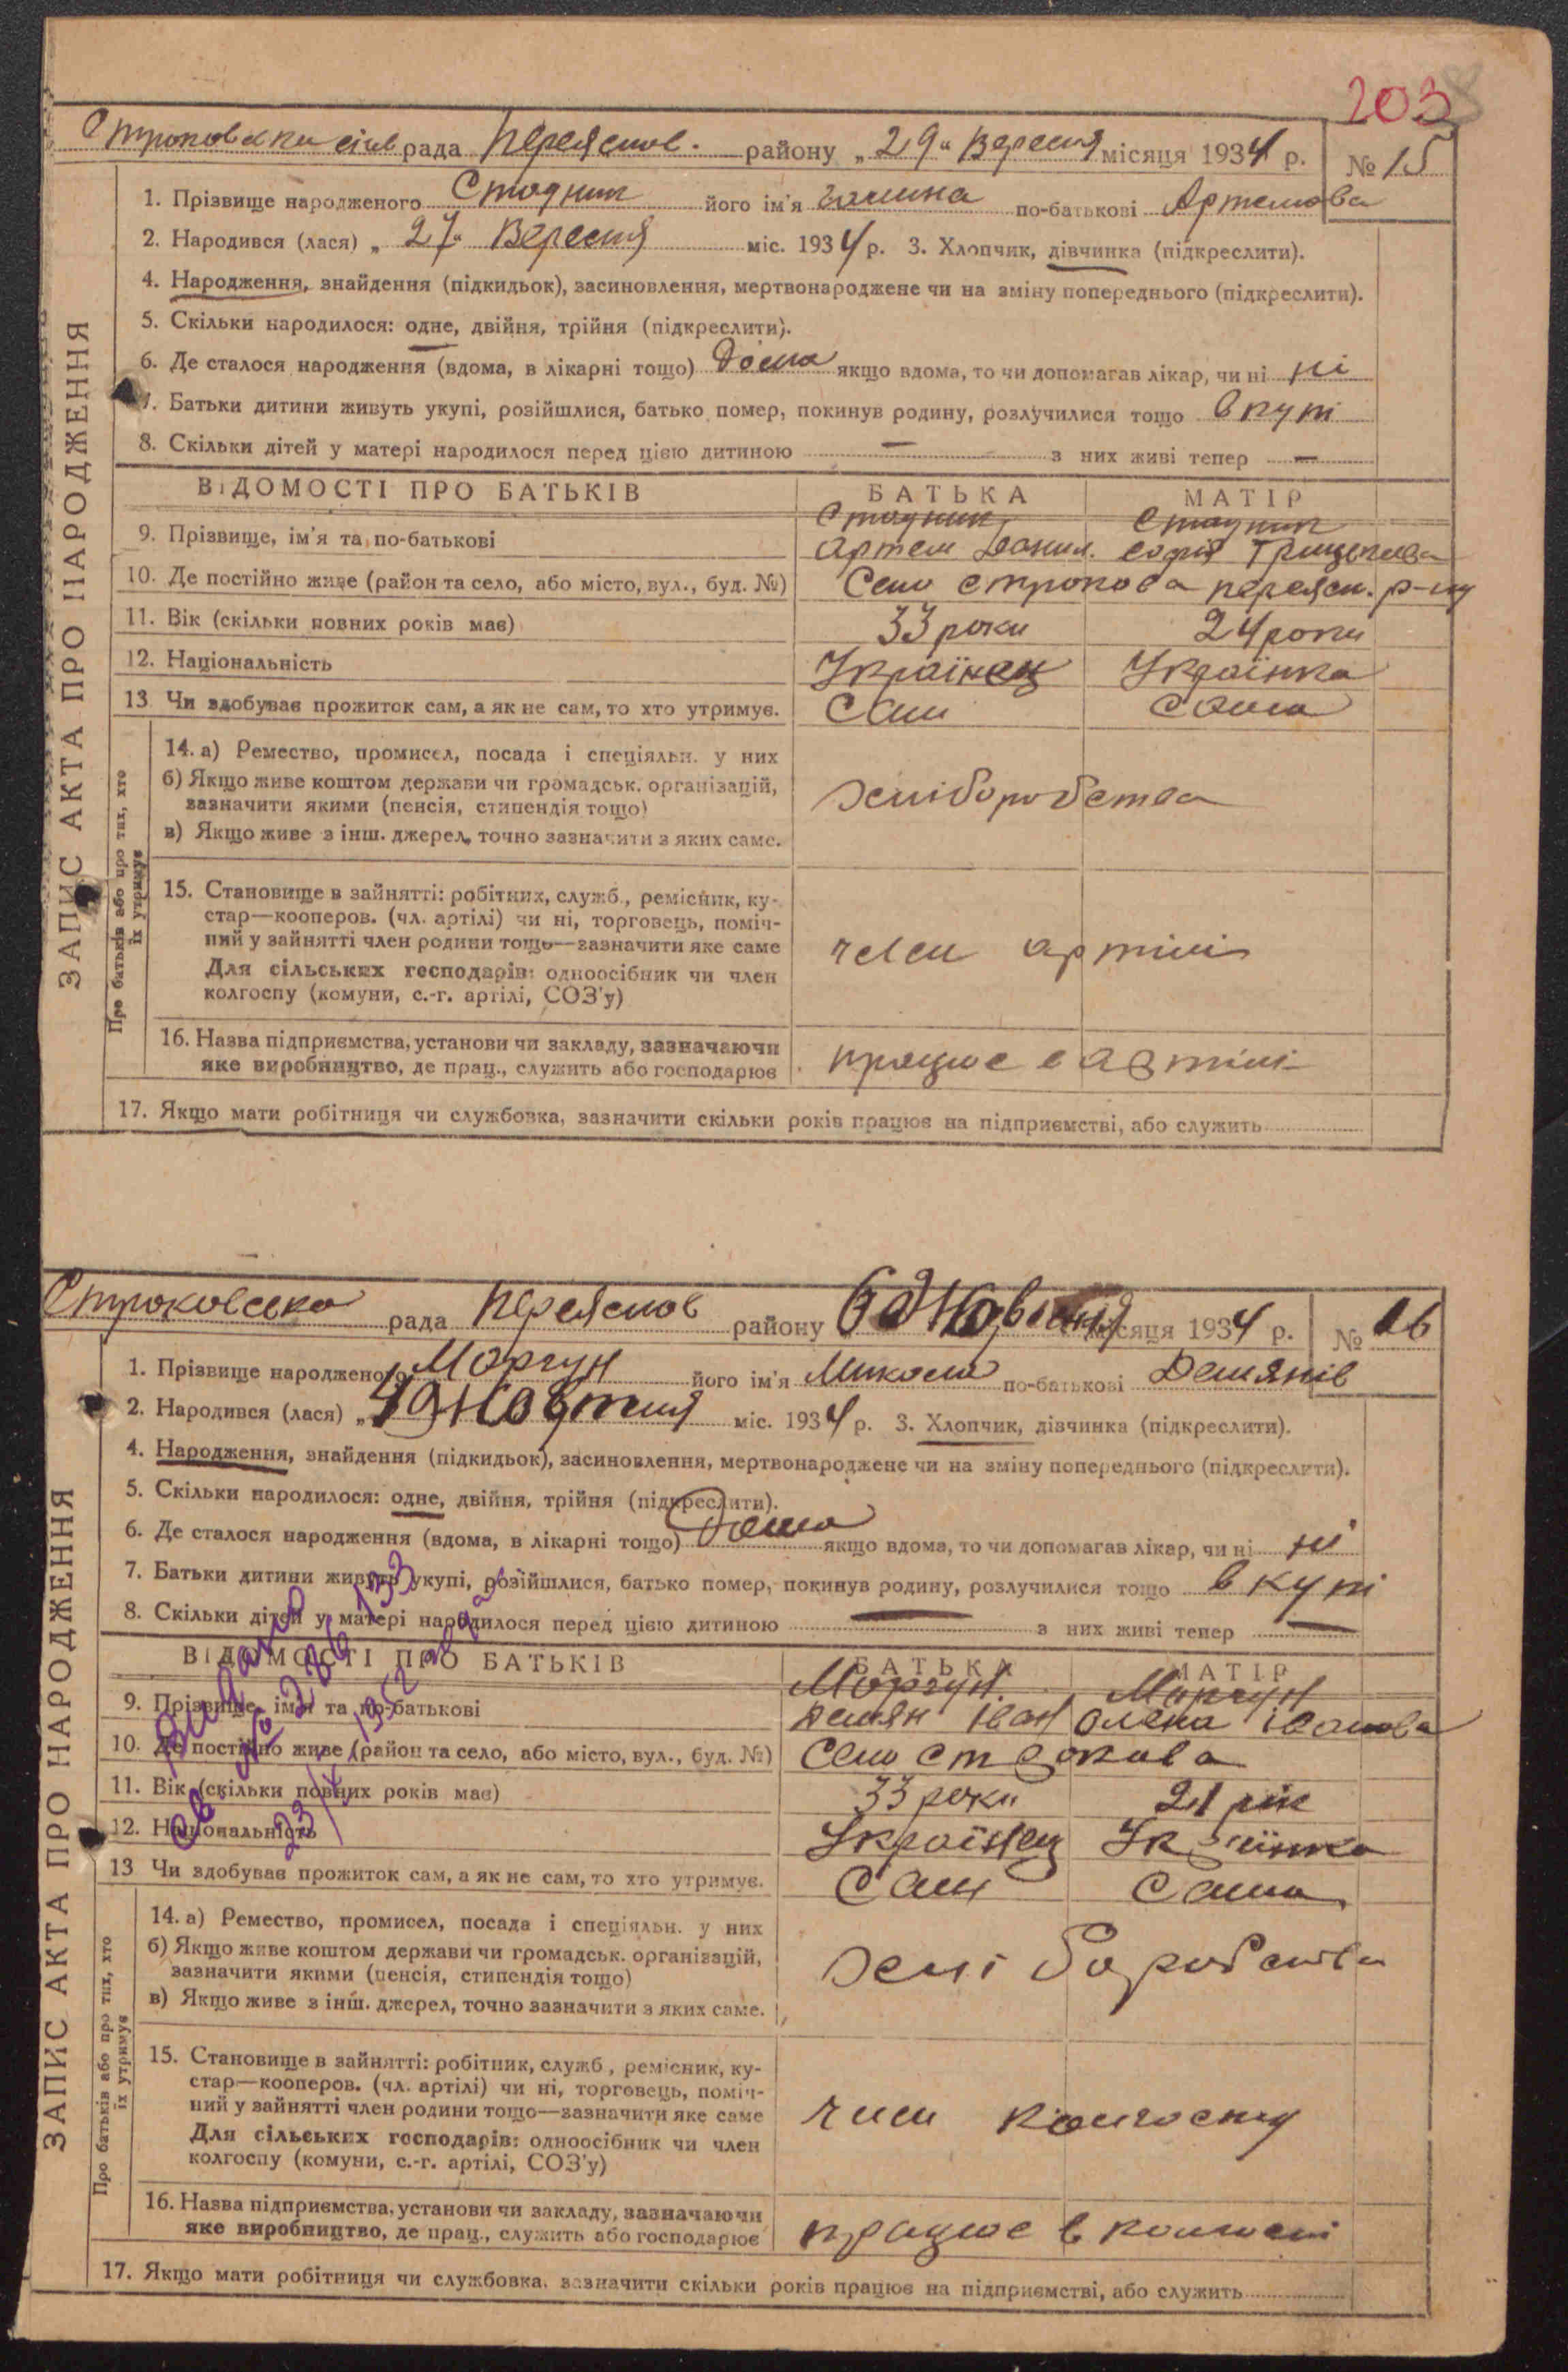 203
Строковська сільрада Переяслов. району „29" Вересня місяця 1934 р. № 15
ЗАПИС АКТА ПРО НАРОДЖЕННЯ
1. Прізвище народженого Стадник його ім'я Галина по-батькові Артемова
2. Народився (лася) „27" Вересня міс. 1934 р. 3. Хлопчик, дівчинка (підкреслити).
4. Народження, знайдення (підкидьок), засиновлення, мертвонароджене чи на зміну попереднього (підкреслити).
5. Скільки народилося: одне, двійня, трійня (підкреслити).
6. Де сталося народження (вдома, в лікарні тощо) дома якщо вдома, то чи допомагав лікар, чи ні ні
7. Батьки дитини живуть укупі, розійшлися, батько помер, покинув родину, розлучилися тощо вкупі
8. Скільки дітей у матері народилося перед цією дитиною — з них живі тепер —
ВІДОМОСТІ ПРО БАТЬКІВ БАТЬКА МАТІР
Стадник Стадник
9. Прізвище, ім'я та по-батькові Артем Данил. Софія Грицькова
10. Де постійно живе (район та село, або місто, вул., буд. №) Село Строкова переясл. р-ну
11. Вік (скільки повних років має) 33 роки 24 роки
12. Національність Українец Українка
13 Чи здобуває прожиток сам, а як не сам, то хто утримує. Сам Сама
Про батьків або про тих, хто їх утримує
14. а) Ремество, промисел, посада і спеціяльн. у них
б) Якщо живе коштом держави чи громадськ. організацій,
зазначити якими (пенсія, стипендія тощо) хліборобства
в) Якщо живе з інш. джерел, точно зазначити з яких саме.
15. Становище в зайнятті: робітник, служб., ремісник, ку-
стар—кооперов. (чл. артілі) чи ні, торговець, поміч-
ний у зайнятті член родини тощо—зазначити яке саме член артілі
Для сільських господарів: одноосібник чи член
колгоспу (комуни, с.-г. артілі, СОЗ'у)
16. Назва підприємства, установи чи закладу, зазначаючи
яке виробництво, де прац., служить або господарює працює в артілі
17. Якщо мати робітниця чи службовка, зазначити скільки років працює на підприємстві, або служить
Строковська рада Переяслов району 6 Жовтня місяця 1934 р. № 16
ЗАПИС АКТА ПРО НАРОДЖЕННЯ
1. Прізвище народженого Моргун його ім'я Микола по-батькові Демянів
2. Народився (лася) „4 Жовтня міс. 1934 р. 3. Хлопчик, дівчинка (підкреслити).
4. Народження, знайдення (підкидьок), засиновлення, мертвонароджене чи на зміну попереднього (підкреслити).
5. Скільки народилося: одне, двійня, трійня (підкреслити).
6. Де сталося народження (вдома, в лікарні тощо) дома якщо вдома, то чи допомагав лікар, чи ні ні
7. Батьки дитини живуть укупі, розійшлися, батько помер, покинув родину, розлучилися тощо вкупі
8. Скільки дітей у матері народилося перед цією дитиною — з них живі тепер —
ВІДОМОСТІ ПРО БАТЬКІВ БАТЬКА МАТІР
Моргун Моргун
9. Прізвище, ім'я та по-батькові Демян Іван Олена Іванова
10. Де постійно живе (район та село, або місто, вул., буд. №) Село Строкова
11. Вік (скільки повних років має) 33 роки 21 рік
12. Національність Українец Українка
13 Чи здобуває прожиток сам, а як не сам, то хто утримує. Сам Сама
Видано
Про батьків або про тих, хто їх утримує
14. а) Ремество, промисел, посада і спеціяльн. у них
б) Якщо живе коштом держави чи громадськ. організацій,
зазначити якими (пенсія, стипендія тощо) хліборобства
в) Якщо живе з інш. джерел, точно зазначити з яких саме.
15. Становище в зайнятті: робітник, служб., ремісник, ку-
стар—кооперов. (чл. артілі) чи ні, торговець, поміч-
ний у зайнятті член родини тощо—зазначити яке саме член колгоспу
Для сільських господарів: одноосібник чи член
колгоспу (комуни, с.-г. артілі, СОЗ'у)
16. Назва підприємства, установи чи закладу, зазначаючи
яке виробництво, де прац., служить або господарює працює в колгоспі
17. Якщо мати робітниця чи службовка, зазначити скільки років працює на підприємстві, або служить